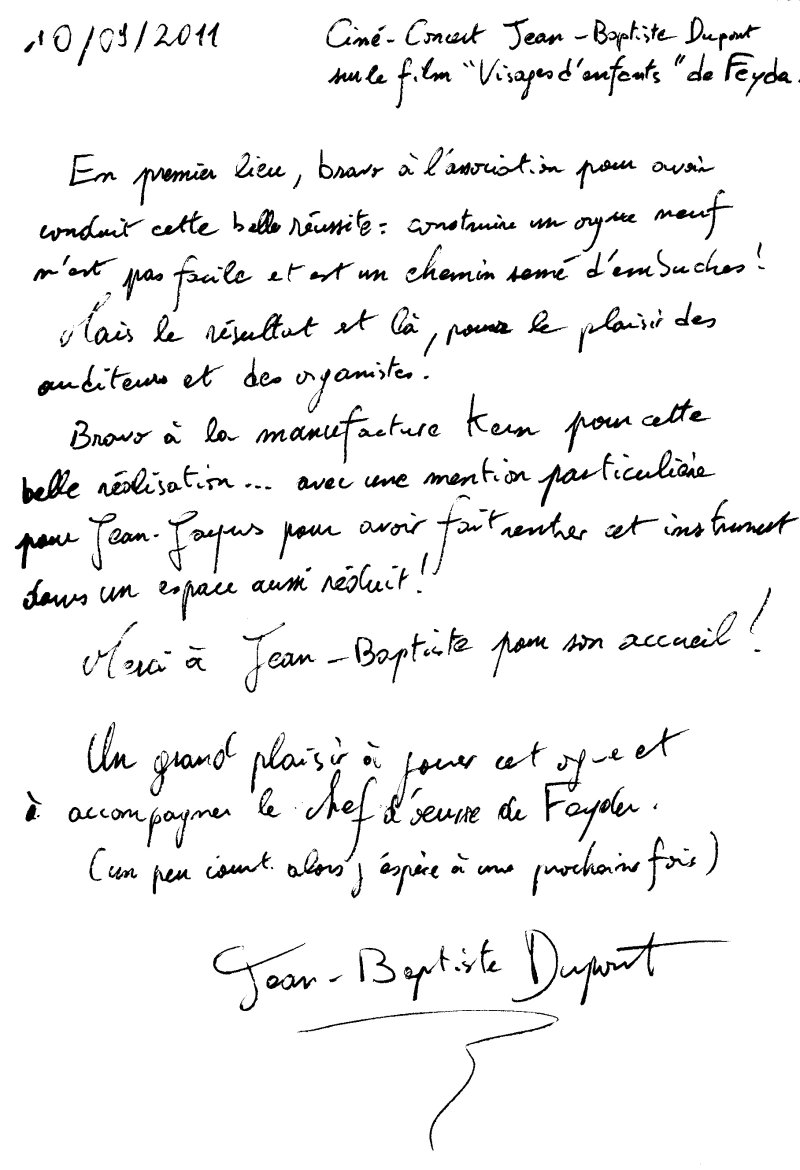 10/09/2011
Ciné-Concert Jean-Baptiste Dupont
sur le film "Visages d'enfants" de Feyder.
En premier lieu, bravo à l'association pour avoir
conduit cette belle réussite : construire un orgue neuf
n'est pas facile et est un chemin semé d'embuches !
Mais le résultat et là, pour le plaisir des
auditeurs et des organistes.
Bravo à la manufacture Kern pour cette
belle réalisation... avec une mention particulière
pour Jean-Jacques pour avoir fait rentrer cet instrument
dans un espace aussi réduit !
Merci à Jean-Baptiste pour son accueil !
Un grand plaisir à jouer cet orgue et
à accompagner le chef d'œuvre de Feyder.
(un peu court. alors j'espère à une prochaine fois)
Jean-Baptiste Dupont